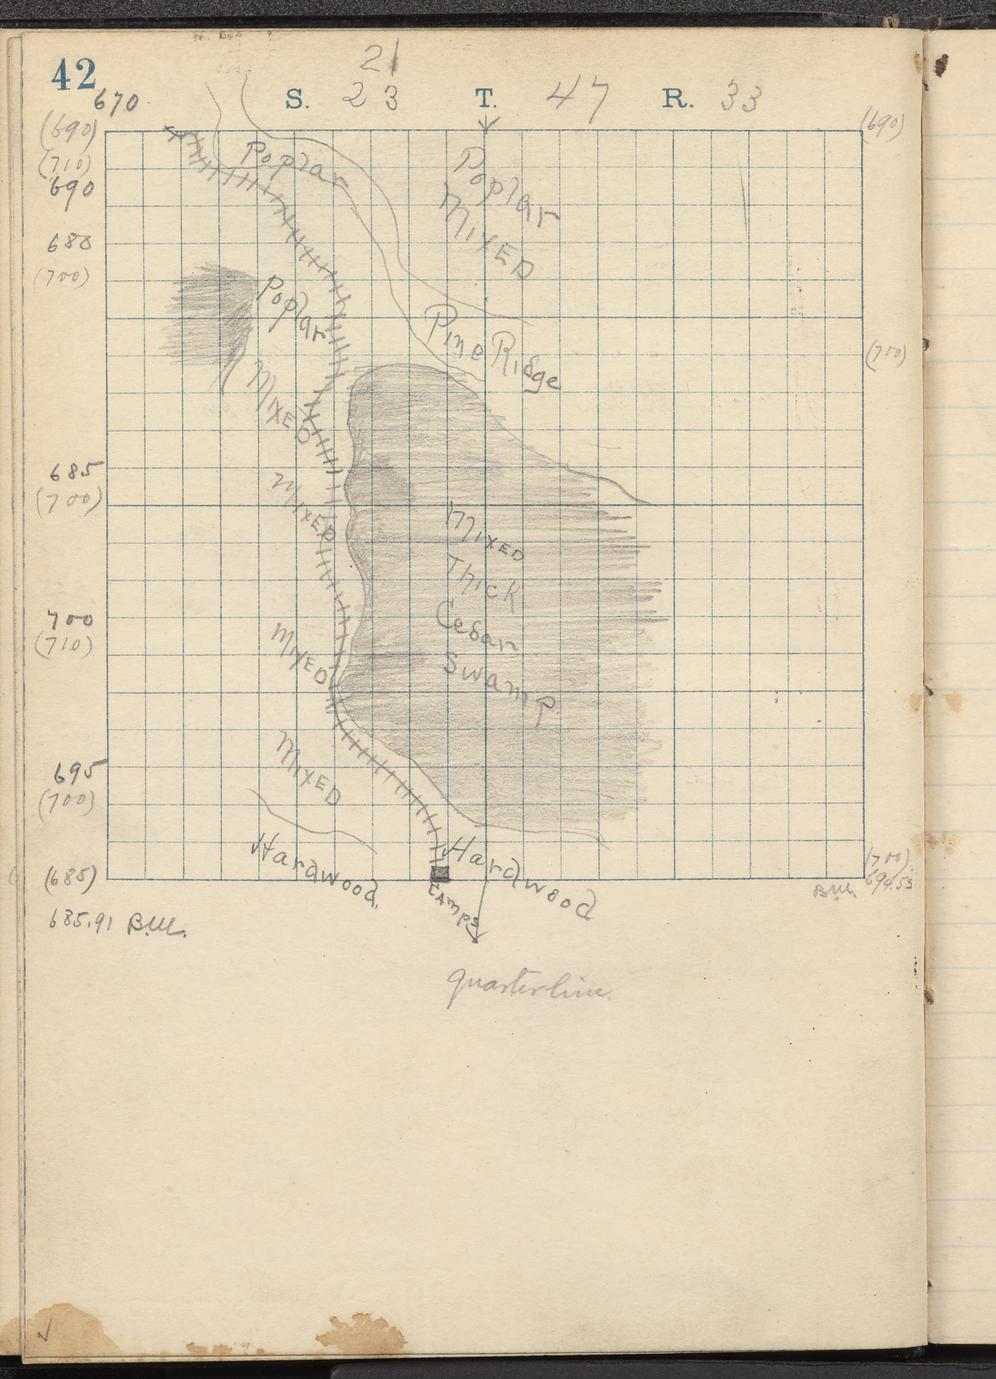 42
21
670 S. 23 T. 47 R. 33
(690) (690)
(710)
690
Poplar
Poplar
Mixed
680
(700)
Poplar
Pine Ridge
(700)
Mixed
685
(700)
Mixed
Mixed
Thick
Cedar
Swamp
700
(710)
Mixed
Mixed
695
(700)
Hardwood
Hardwood
(700)
694.53
(685)
Camps
B.M.
685.91 B.M.
quarter line